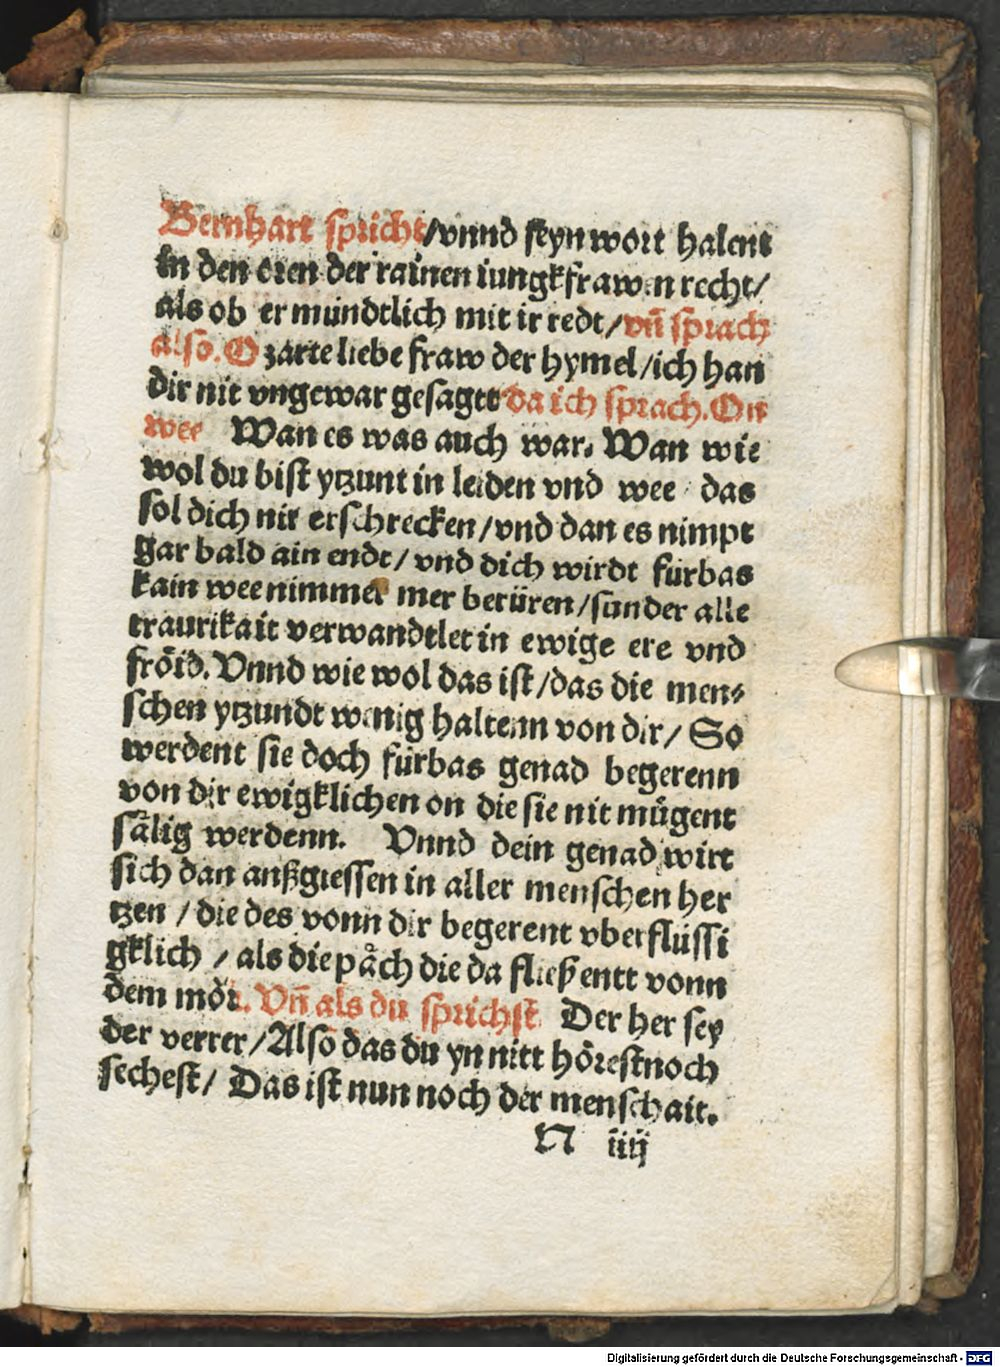 Bernhart spricht/vnnd seyn wort halent
in den oren der rainen iungkfrawen recht/
als ob er mündtlich mit ir redt/vñ sprach
also. O zarte liebe fraw der hymel/ich han
dir nit vngewar gesagtt da ich sprach. On
wee Wan es was auch war. Wan wie
wol du bist ytzunt in leiden vnd wee das
sol dich nit erschrecken/vnd dan es nimpt
gar bald ain endt/ vnd dich wirdt fürbas
kain wee nimmer mer berüren/sunder alle
traurikait verwandtlet in ewige ere vnd
fröid. Vnnd wie wol das ist/das die men⸗
schen ytzundt wenig haltenn von dir/ So
werdent sie doch fürbas genad begerenn
von dir ewigklichen on die sie nit mügent
sälig werdenn. Vnnd dein genad wirt
sich dan außgiessen in aller menschen her
tzen / die des vonn dir begerent vberflüssi
gklich / als die påch die da fließentt vonn
dem mör. Vñ als du sprichst Der her sey
der verrer/Also das du yn nitt hörest noch
sechest/ Das ist nun noch der menschait.
N iiij
Digitalisierung gefördert durch die Deutsche Forschungsgemeinschaft - DFG